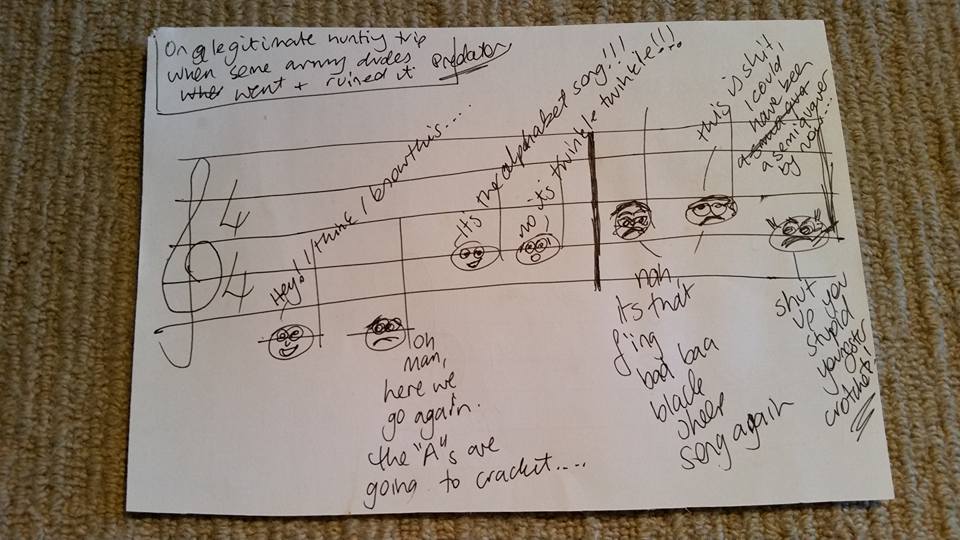 On a legitimate hunting trip
when some army dudes
went + ruined it Predator
4
4
Hey! I think I know this...
oh
man,
here we
go again.
the "A"s are
going to crack it....
It's the alphabet song!!!
no it's twinkle twinkle!!!...
nah,
its that
f'ing
baa baa
black
sheep
song again
this is shit,
I could
have been
a semiquaver
by now...
shut
up you
stupid
youngster
crotchets!